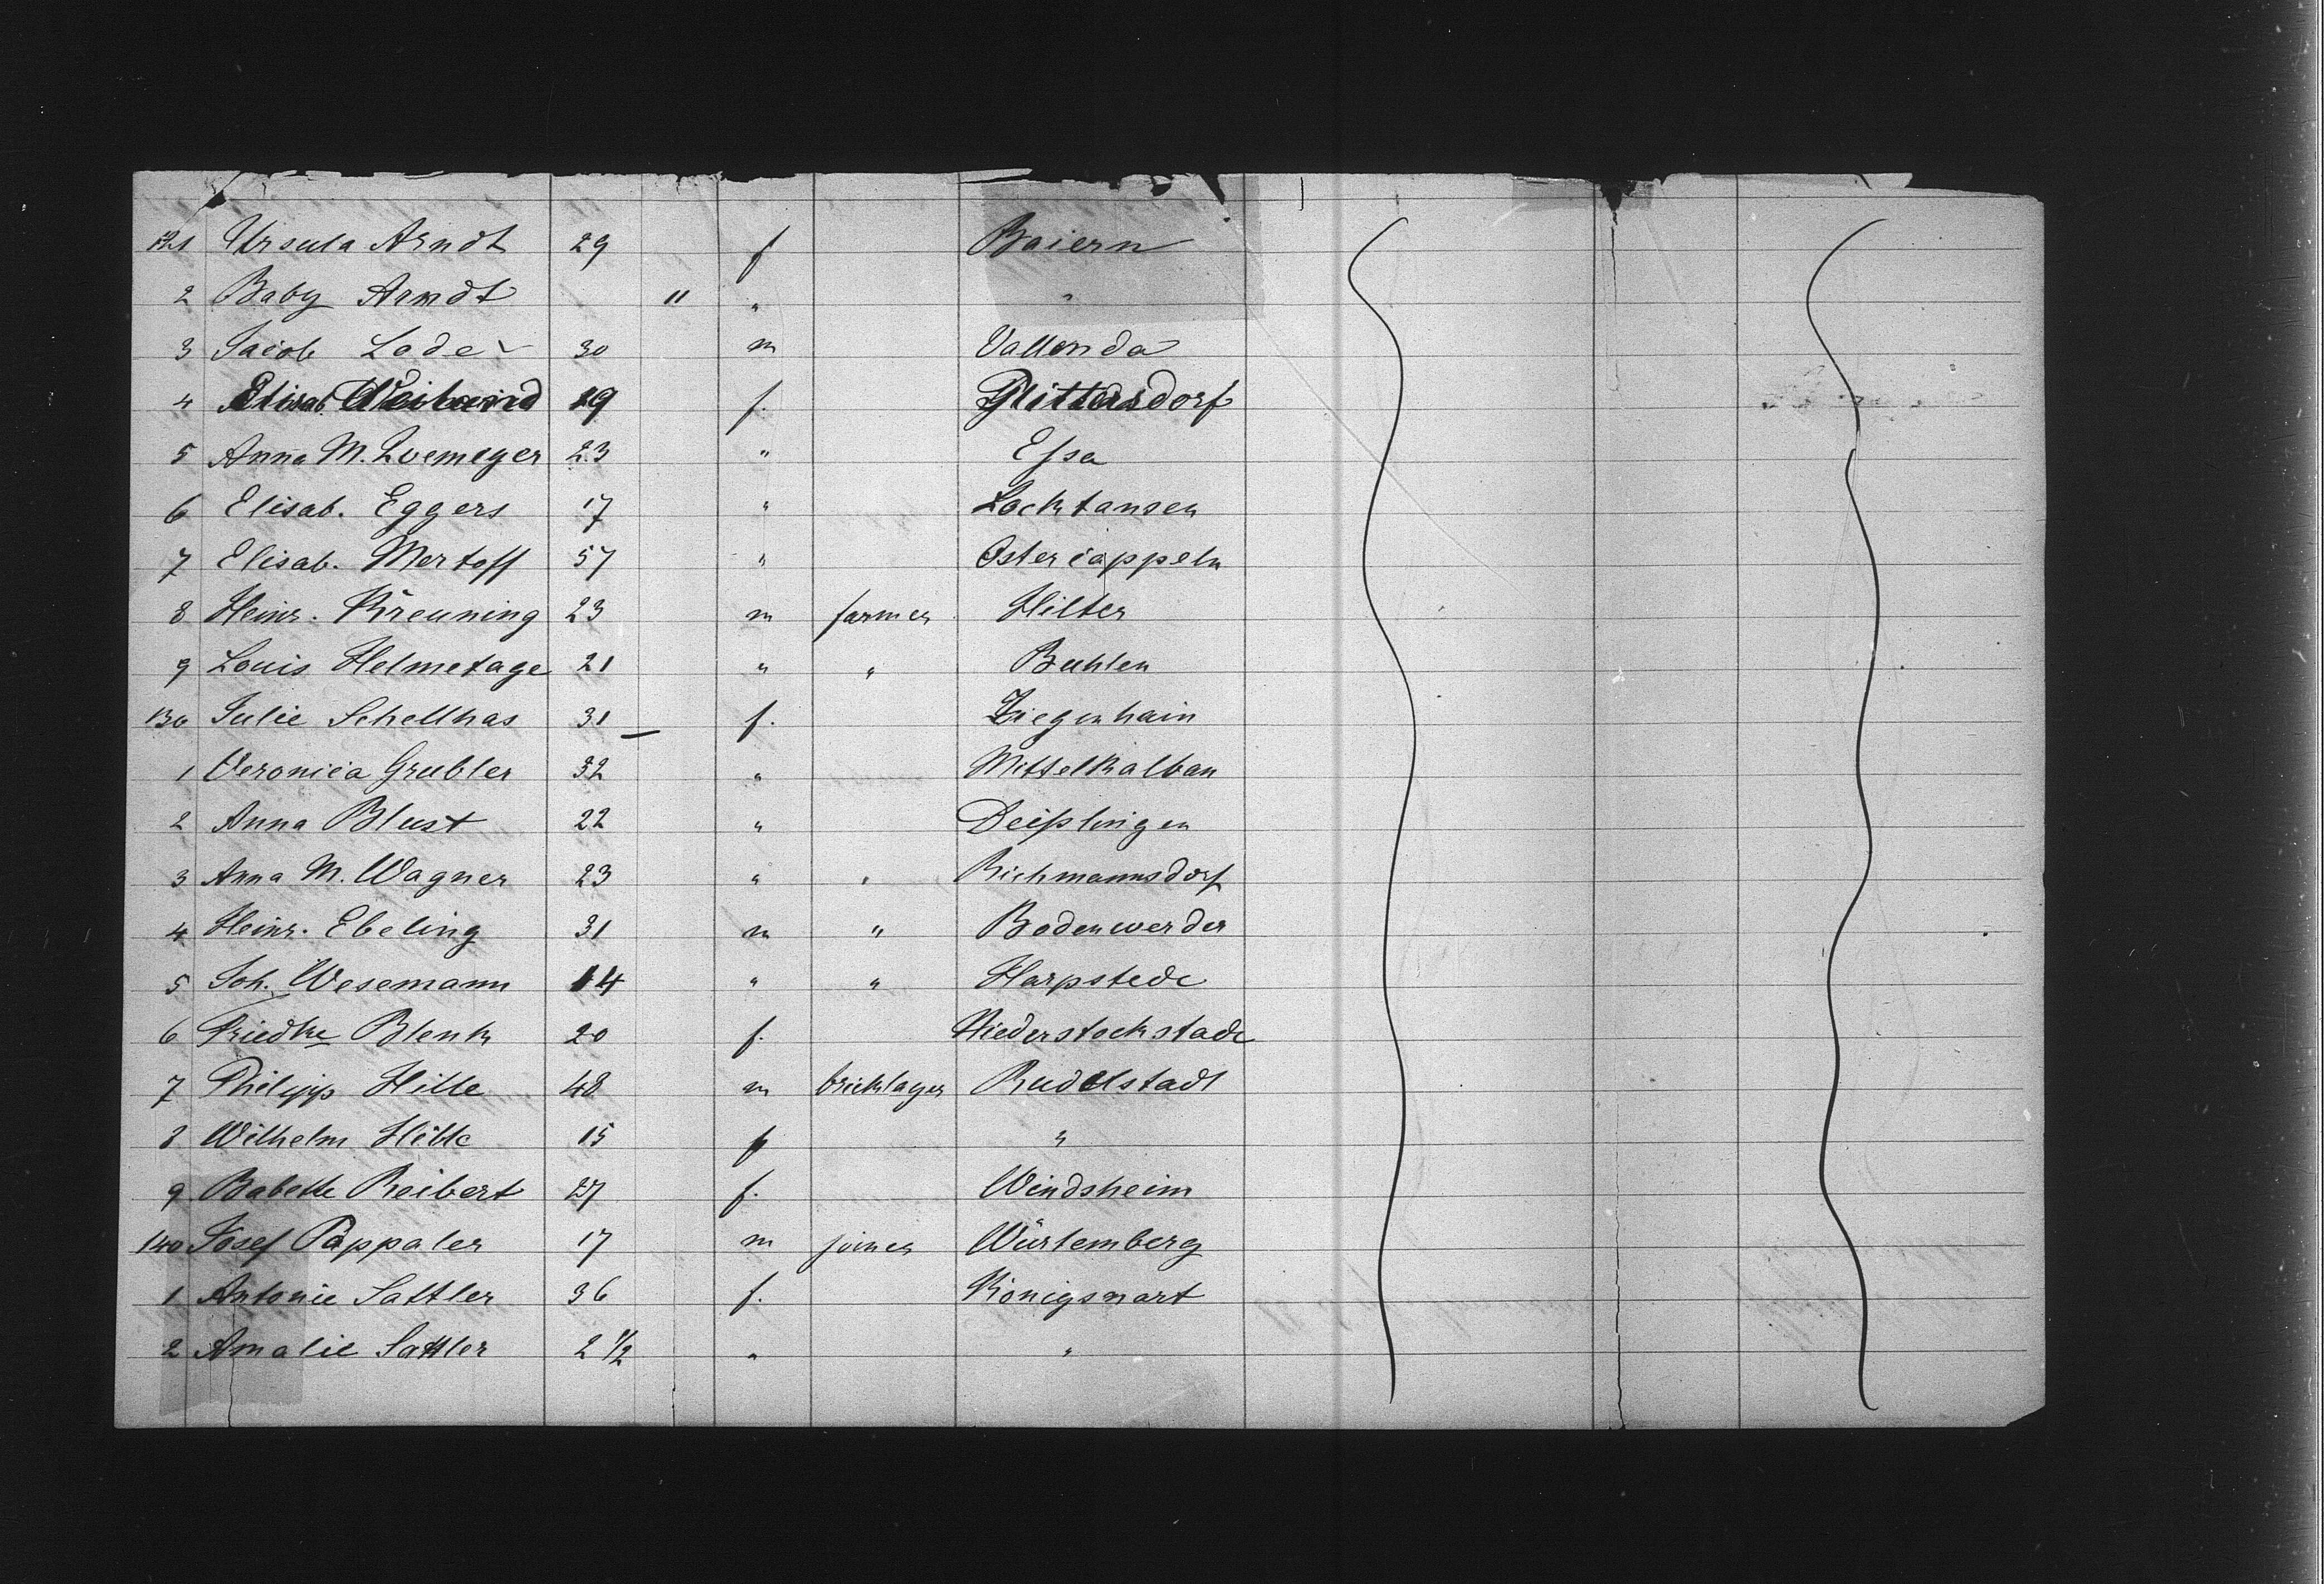 121 Ursula Arndt 29 f Baiern
2 Baby Arndt " " "
3 Jacob Lode 30 m Vallenda
4 Elisab. Weiland 29 f. Plittersdorf
5 Anna M. Lvemeyer 23 " Essa
6 Elisab. Eggers 17 " Locktansen
7 Elisab. Mertoff 57 " Ostercappeln
8 Heinr. Kreuning 23 m farmer Hilter
9 Louis Helmetage 21 " " Buhlen
130 Julie Schellhas 31 f. Ziegenhain
1 Veronica Grubler 32 " Mittelkalban
2 Anna Blust 22 " Deißlingen
3 Anna M. Wagner 23 " " Richmannsdorf
4 Heinr. Ebeling 31 m " Bodenwerder
5 Joh. Wesemann 14 " " Harpstede
6 Friedke Blenk 20 f. Niederstockstade
7 Philipp Hille 48 m bricklayer Rudolstadt
8 Wilhelm Hille 15 f "
9 Babette Reibert 27 f. Windsheim
140 Josef Pappaler 17 m joiner Würtemberg
1 Antonie Sattler 36 f. Königswart
2 Amalie Sattler 2 1/2 " "